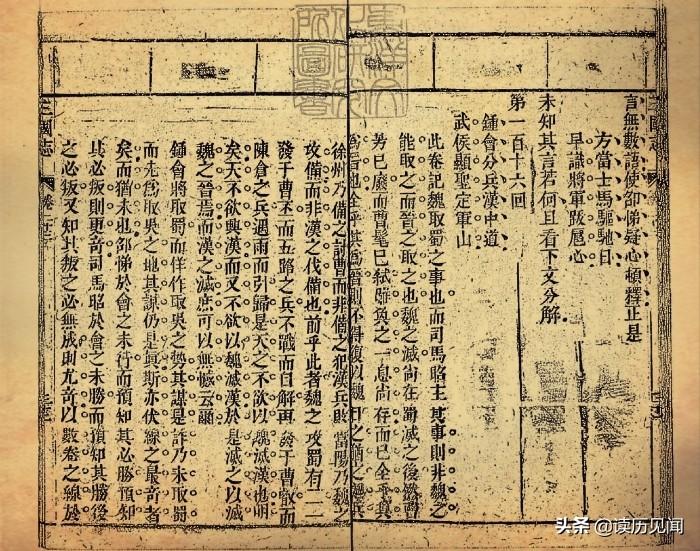 言無數語使邵悌疑心頓釋止是
方當士馬驅馳日
早識將軍跋扈心
未知其言若何且看下文分解
第一百十六回
鍾會分兵漢中道
武侯顯聖定軍山
此卷記魏取蜀之事也而司馬昭主其事則非魏之
能取之而晉之取之也魏之滅尚在蜀滅之後然曹
芳已廢而曹髦已弒雖奐之一息尚存而已全乎其
為晉也全乎其為晉則不得復以魏目之猶之魏兵
徐州乃備之討曹而非備之犯漢兵敗當陽乃魏之
攻備而非漢之伐備也前乎此者魏之攻蜀有二一
發于曹丕而五路之兵不戰而自解再發于曹叡而
陳倉之兵遇雨而引歸是天之不欲以魏滅漢也明
矣天不欲興漢而又不欲以魏滅漢於是滅之以滅
魏之晉焉而漢之滅庶可以無憾云爾
鍾會將取蜀而佯作取吳之勢其謀是詐乃未取蜀
而先為取吳之地其謀仍是眞斯亦伏線之最奇者
矣而猶未也邵悌於會之未行而預知其必勝預知
其必叛則更奇司馬昭於會之未勝而預知其勝後
之必叛又知其叛之必無成則尤奇以數卷之線於
三國志
头条 @读历见闻